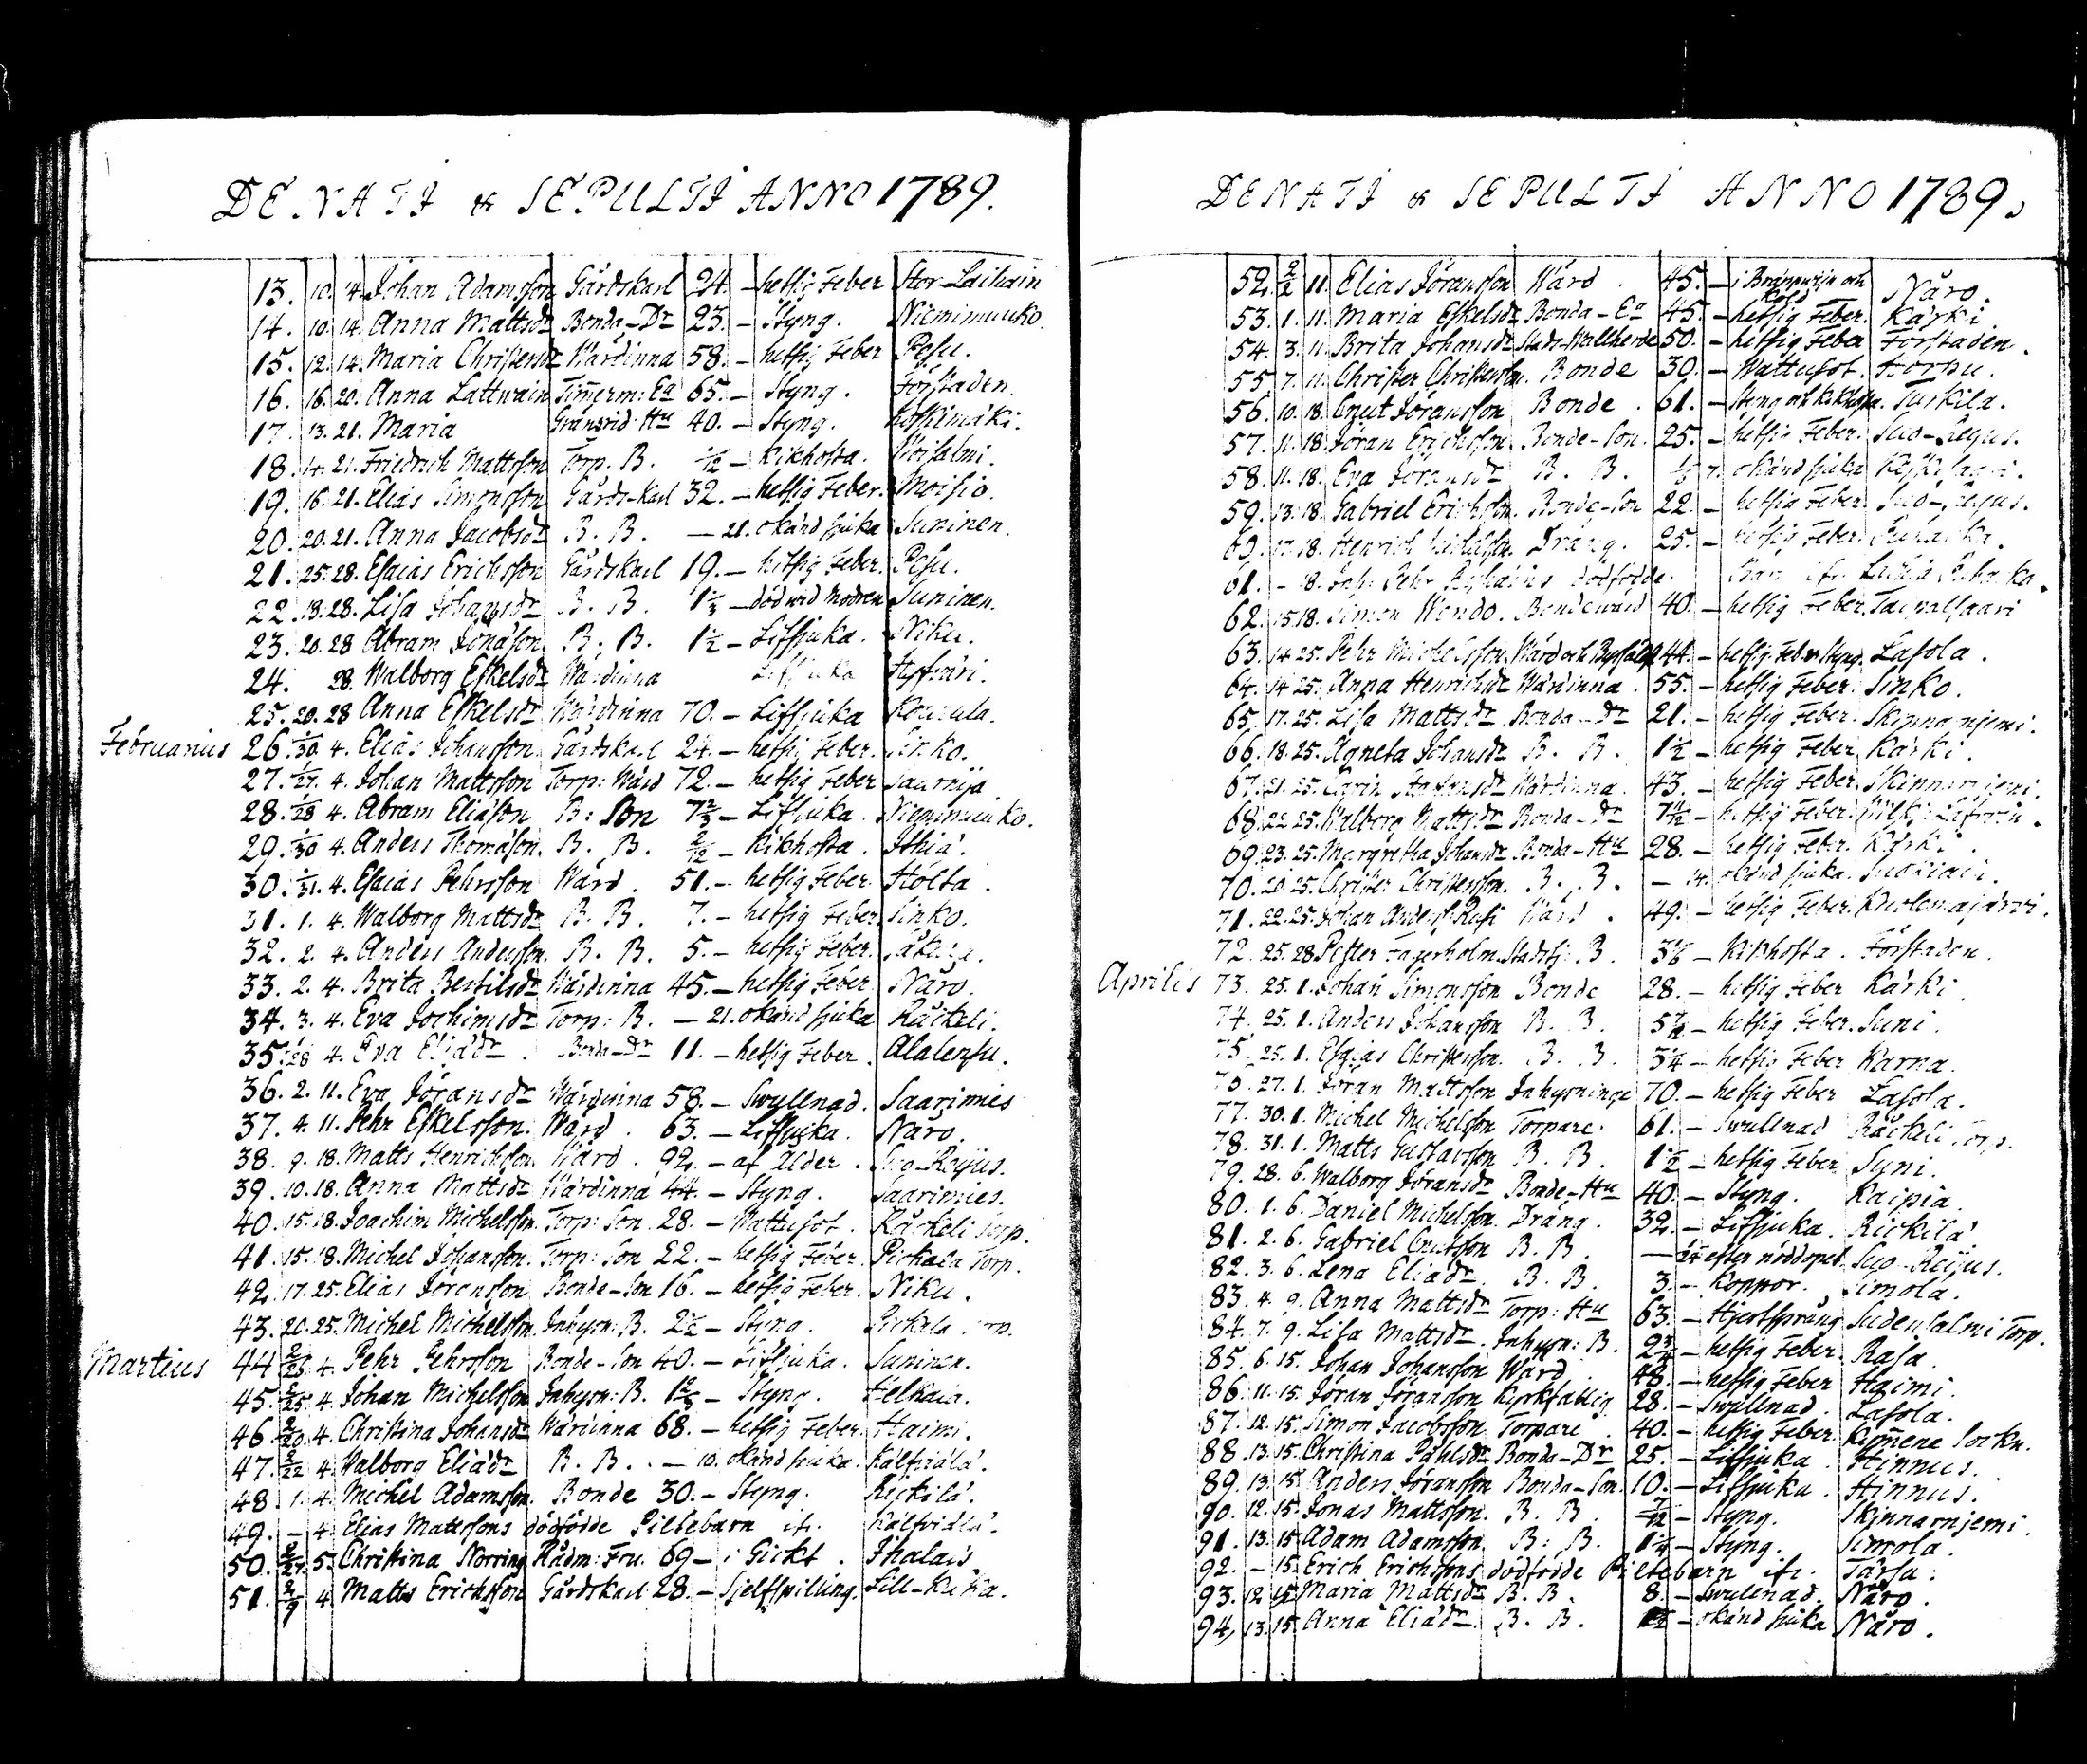 DENATI & SEPULTI ANNO 1789.
13. 10. 14. Johan Adamsson Gårdskarl 24. – hetsig Feber Stor-Laihain
14. 10. 14. Anna Mattsdr Bonda-Dr 23. – Styng. Niemimuuko.
15. 12. 14. Maria Christersdr Wärdinna 58. – hetsig Feber Pesu.
16. 16. 20. Anna Lattwain Tim̄erm: Ea 65. – Styng. Förstaden.
17. 13. 21. Maria Gränsrid. Hu 40. – Styng. Koskimäki.
18. 14. 21. Friedrich Mattsson Torp. B. 1/12 – Kikhosta.
19. 16. 21. Elias Simonsson Gårds-Karl 32. – hetsig Feber. Moisio.
20. 20. 21. Anna Jacobsdr B. B. – 21. okänd sjuka Suninen.
21. 25. 28. Esaias Erichsson Gårdskarl 19. – hetsig Feber. Pesu.
22. 18. 28. Lisa Johansdr B. B. 1 1/3 – död wid Modren Suninen.
23. 20. 28 Abram Jonason B. B. 1 1/2 – Lifsjuka. Niku.
24. 28. Walborg Eskelsdr Wärdinna Lifsjuka
25. 20. 28 Anna Eskelsdr Wärdinna 70. – Lifsjuka Kouvula.
Februarius 26. 1/30 4. Elias Johansson Gårdskarl 24. – hetsig Feber. Sinko.
27. 1/27. 4. Johan Mattsson Torp: Wärd 72. – hetsig Feber Saarnija.
28. 1/28 4. Abram Eliason B: Son 7 2/3 – Lifsjuka. Niemimuuko.
29. 1/30 4. Anders Thomason. B. B. 2/12 – Kikhosta. Ithiä.
30. 1/31. 4. Esaias Pehrsson Wärd. 51. – hetsig Feber. Hölta.
31. 1. 4. Walborg Mattsdr B. B. 7. – hetsig Feber. Sinko.
32. 2. 4. Anders Andersson. B. B. 5. – hetsig Feber.
33. 2. 4. Brita Bertilsdr Wärdinna 45. – hetsig Feber. Näro.
34. 3. 4. Eva Jochimsdr Torp: B. – 21. okänd sjuka Räckeli.
35. 1/28 4. Eva Eliædr. Bonda-Dr 11. – hetsig Feber. Alalensu.
36. 2. 11. Eva Jöransdr Wärdinna 58. – Swullnad. Saarimies
37. 4. 11. Pehr Eskelsson. Wärd. 63. – Lifsjuka. Näro.
38. 9. 18. Matts Henrichsson. Wärd. 92. – af Ålder. Suo-Reijus.
39. 10. 18. Anna Mattsdr Wärdinna 44. – Styng. Saarimies.
40. 15. 18. Joachim Michelsson. Torp: Son. 28. – Wattusot. Räckeli Torp.
41. 15. 18. Michel Johansson. Torp: Son 22. – hetsig Feber. Pickala Torp.
42. 17. 25. Elias Jöransson. Bonde-Son 16. – hetsig Feber. Niku.
43. 20. 25. Michel Michelsson. Inhysn: B. 2 1/2 – Styng. Pickala Torp.
Martius 44 2/23. 4. Pehr Pehrsson Bonde-Son 40. – Lifsjuka. Suninen.
45. 2/25. 4. Johan Michelsson Inhysn: B. – Styng. Helkala.
46. 2/20. 4. Christina Johansdr Wärdinna 68. – hetsig Feber. Haimi.
47. 2/22 4. Walborg Eliædr B. B. – 10. okänd sjuka. Kälfviälä.
48. 1. 4. Michel Adamsson. Bonde 30. – Styng. Rickilä.
49. – 4. Elias Mattssons dödfödde Piltebarn ifr. Kälfviälä.
50. 2/27. 5. Christina Norring Rådm: Fru. 69 – i Gickt. Ihalais
51. 2/9 4. Matts Erichsson Gårdskarl 28. – Sjelfspilling. Lill-Kiha.
DENATI & SEPULTI ANNO 1789.
52. 2/2 11. Elias Jöransson Wärd. 45. – i Brännwijn och Köld Näro.
53. 1. 11. Maria Eskelsdr Bonda-Ea 45. – hetsig Feber. Kärki
54. 3. 11. Brita Johansdr Stads-Wallherde 50. – hetsig Feber Förstaden.
55. 7. 11. Christer Christersson. Bonde 30. – Wattusot. Horsu.
56. 10. 18. Cnut Jöransson Bonde. 61. – Styng och Kikhosta. Tuskila.
57. 11. 18. Jöran Erichsson. Bonde-Son. 25. – hetsig Feber. Suo-Reijus.
58. 11. 18. Eva Jöransdr B. B. okänd sjuka
59. 13. 18. Gabriel Erichsson. Bonde-Son 22. – hetsig Feber. Suo-Reijus.
60. 17. 18. Henrich Dräng. 25. – hetsig Feber.
61. – 18. Joh: Pehr dödfödde
62. 15. 18. Simon Wondo. Bondewärd 40. – hetsig Feber. Taipalsaari
63. 14. 25. Pehr Michelsson. Wärd och 44. – hetsig Feber Styng. Lasola.
64. 14. 25. Anna Henrichsdr Wärdinna. 55. – hetsig Feber. Sinko.
65. 17. 25. Lisa Mattsdr Bonda-Dr 21. – hetsig Feber. Skinnarnjemi.
66. 18. 25. Agneta Johansdr B. B. 1 1/2 – hetsig Feber. Kärki.
67. 21. 25. Carin Staffansdr Wärdinna. 43. – hetsig Feber. Skinnarnjemi.
68. 22. 25. Walborg Mattsdr Bonda-Dr – hetsig Feber.
69. 23. 25. Margretha Johansdr Bonda-Hu 28. – hetsig Feber. Kärki.
70. 20. 25. Christer Christersson. B. B. – 14. okänd sjuka.
71. 22. 25. Johan Wärd. 49. – hetsig Feber. Kuolemajärvi.
72. 25. 28. Petter Fagerholm. Stadstj: B. 3 1/6 – Kikhosta. Förstaden.
Aprilis 73. 25. 1. Johan Simonsson Bonde 28. – hetsig Feber Kärki.
74. 25. 1. Anders Johansson B. B. – hetsig Feber. Suni.
75. 25. 1. Esaias Christersson. B. B. – hetsig Feber Karna.
76. 27. 1. Jöran Mattsson Inhysninge 70. – hetsig Feber Lasola.
77. 30. 1. Michel Michelsson Torpare. 61. – Swullnad Räckeli Torp.
78. 31. 1. Matts Gustavsson B. B. 1 1/2 – hetsig Feber Suni.
79. 28. 6. Walborg Jöransdr Bonde-Hu 40. – Styng. Kaipia.
80. 1. 6. Daniel Michelsson. Dräng. 32. – Lifsjuka. Rickilä.
81. 2. 6. Gabriel Cnutsson B. B. – 1/24 efter nöddopet. Suo-Reijus.
82. 3. 6. Lena Eliædr. B. B. 3. – Koppor. Simola.
83. 4. 9. Anna Mattsdr Torp: Hu 63. – Hjertsprång Sudensalmi Torp.
84. 7. 9. Lisa Mattsdr. Inhysn: B. 2 3/4 – hetsig Feber. Rasa.
85. 6. 15. Johan Johansson Wärd 48. – hetsig Feber Haimi.
86. 11. 15. Jöran Jöransson Kyrkfattig 28. – Swullnad. Lasola.
87. 12. 15. Simon Jacobsson Torpare. 40. – hetsig Feber. Kim̄ene Sockn.
88. 13. 15. Christina Påhlsdr Bonda-Dr 25. – Lifsjuka. Hinnus.
89. 13. 15. Anders Jöransson Bonda-Son. 10. – Lifsjuka. Hinnus.
90. 12. 15. Jonas Mattsson. B. B. 7/12 – Styng. Skinnarnjemi.
91. 13. 15. Adam Adamsson. B: B. 1 1/4 – Styng. Simola.
92. – 15. Erich Erichssons dödfödde Piltebarn ifr. Tärsu:
93. 12. 15. Maria Mattsdr B. B. 8. – Swullnad. Näro.
94, 13. 15. Anna Eliædr. B. B. – okänd sjuka Näro.